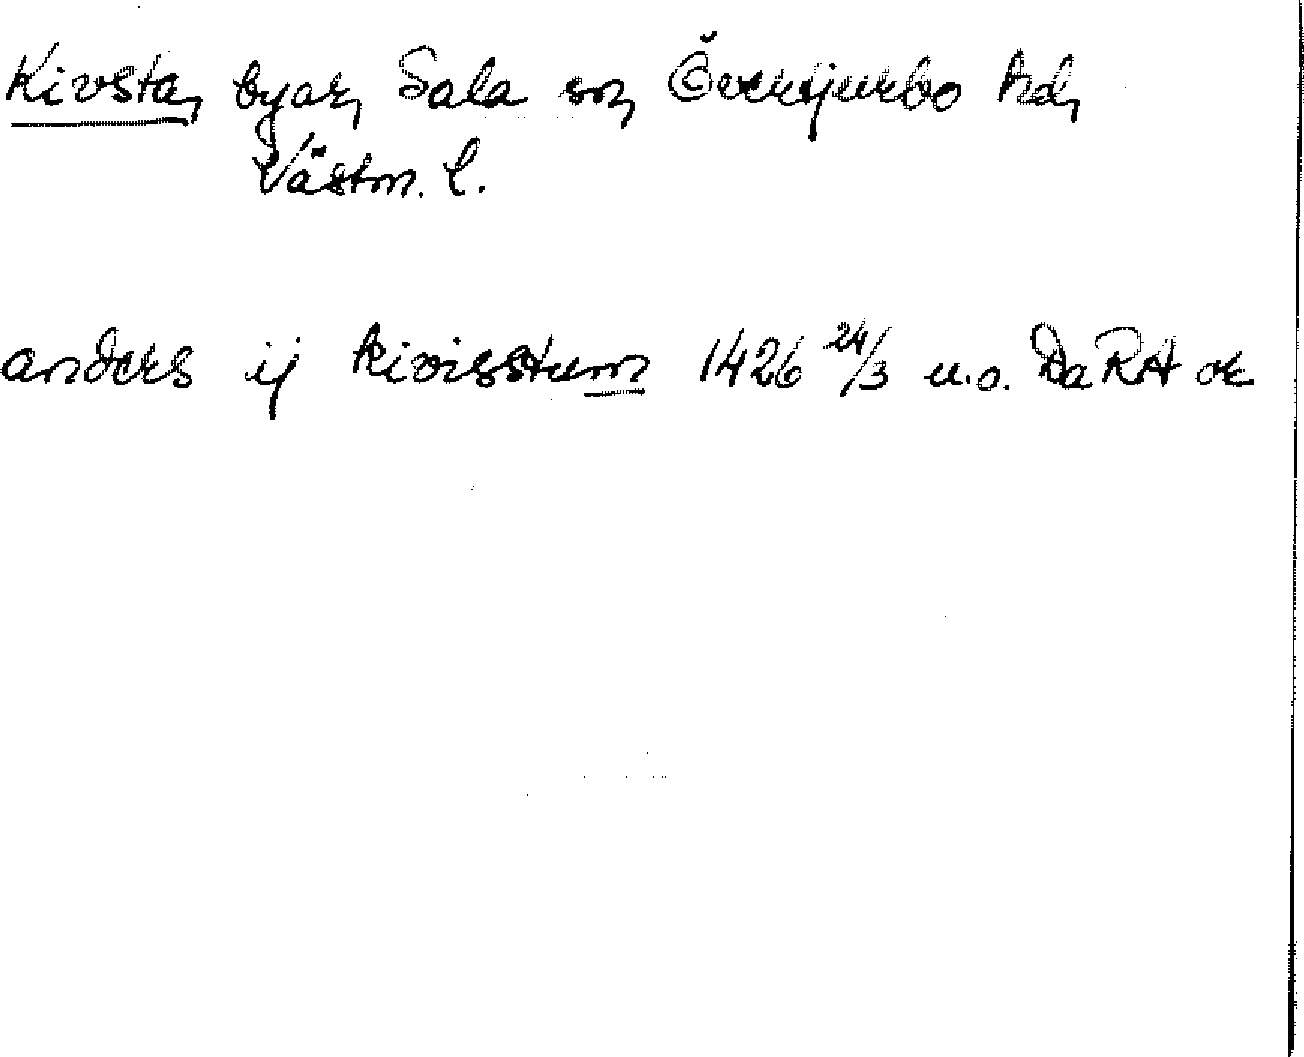 Kivsta, byar, Sala sn, Övertjurbo hd,
Västm. l.
anders ij kivisstum 1426 24/3 u.o. Da RA or